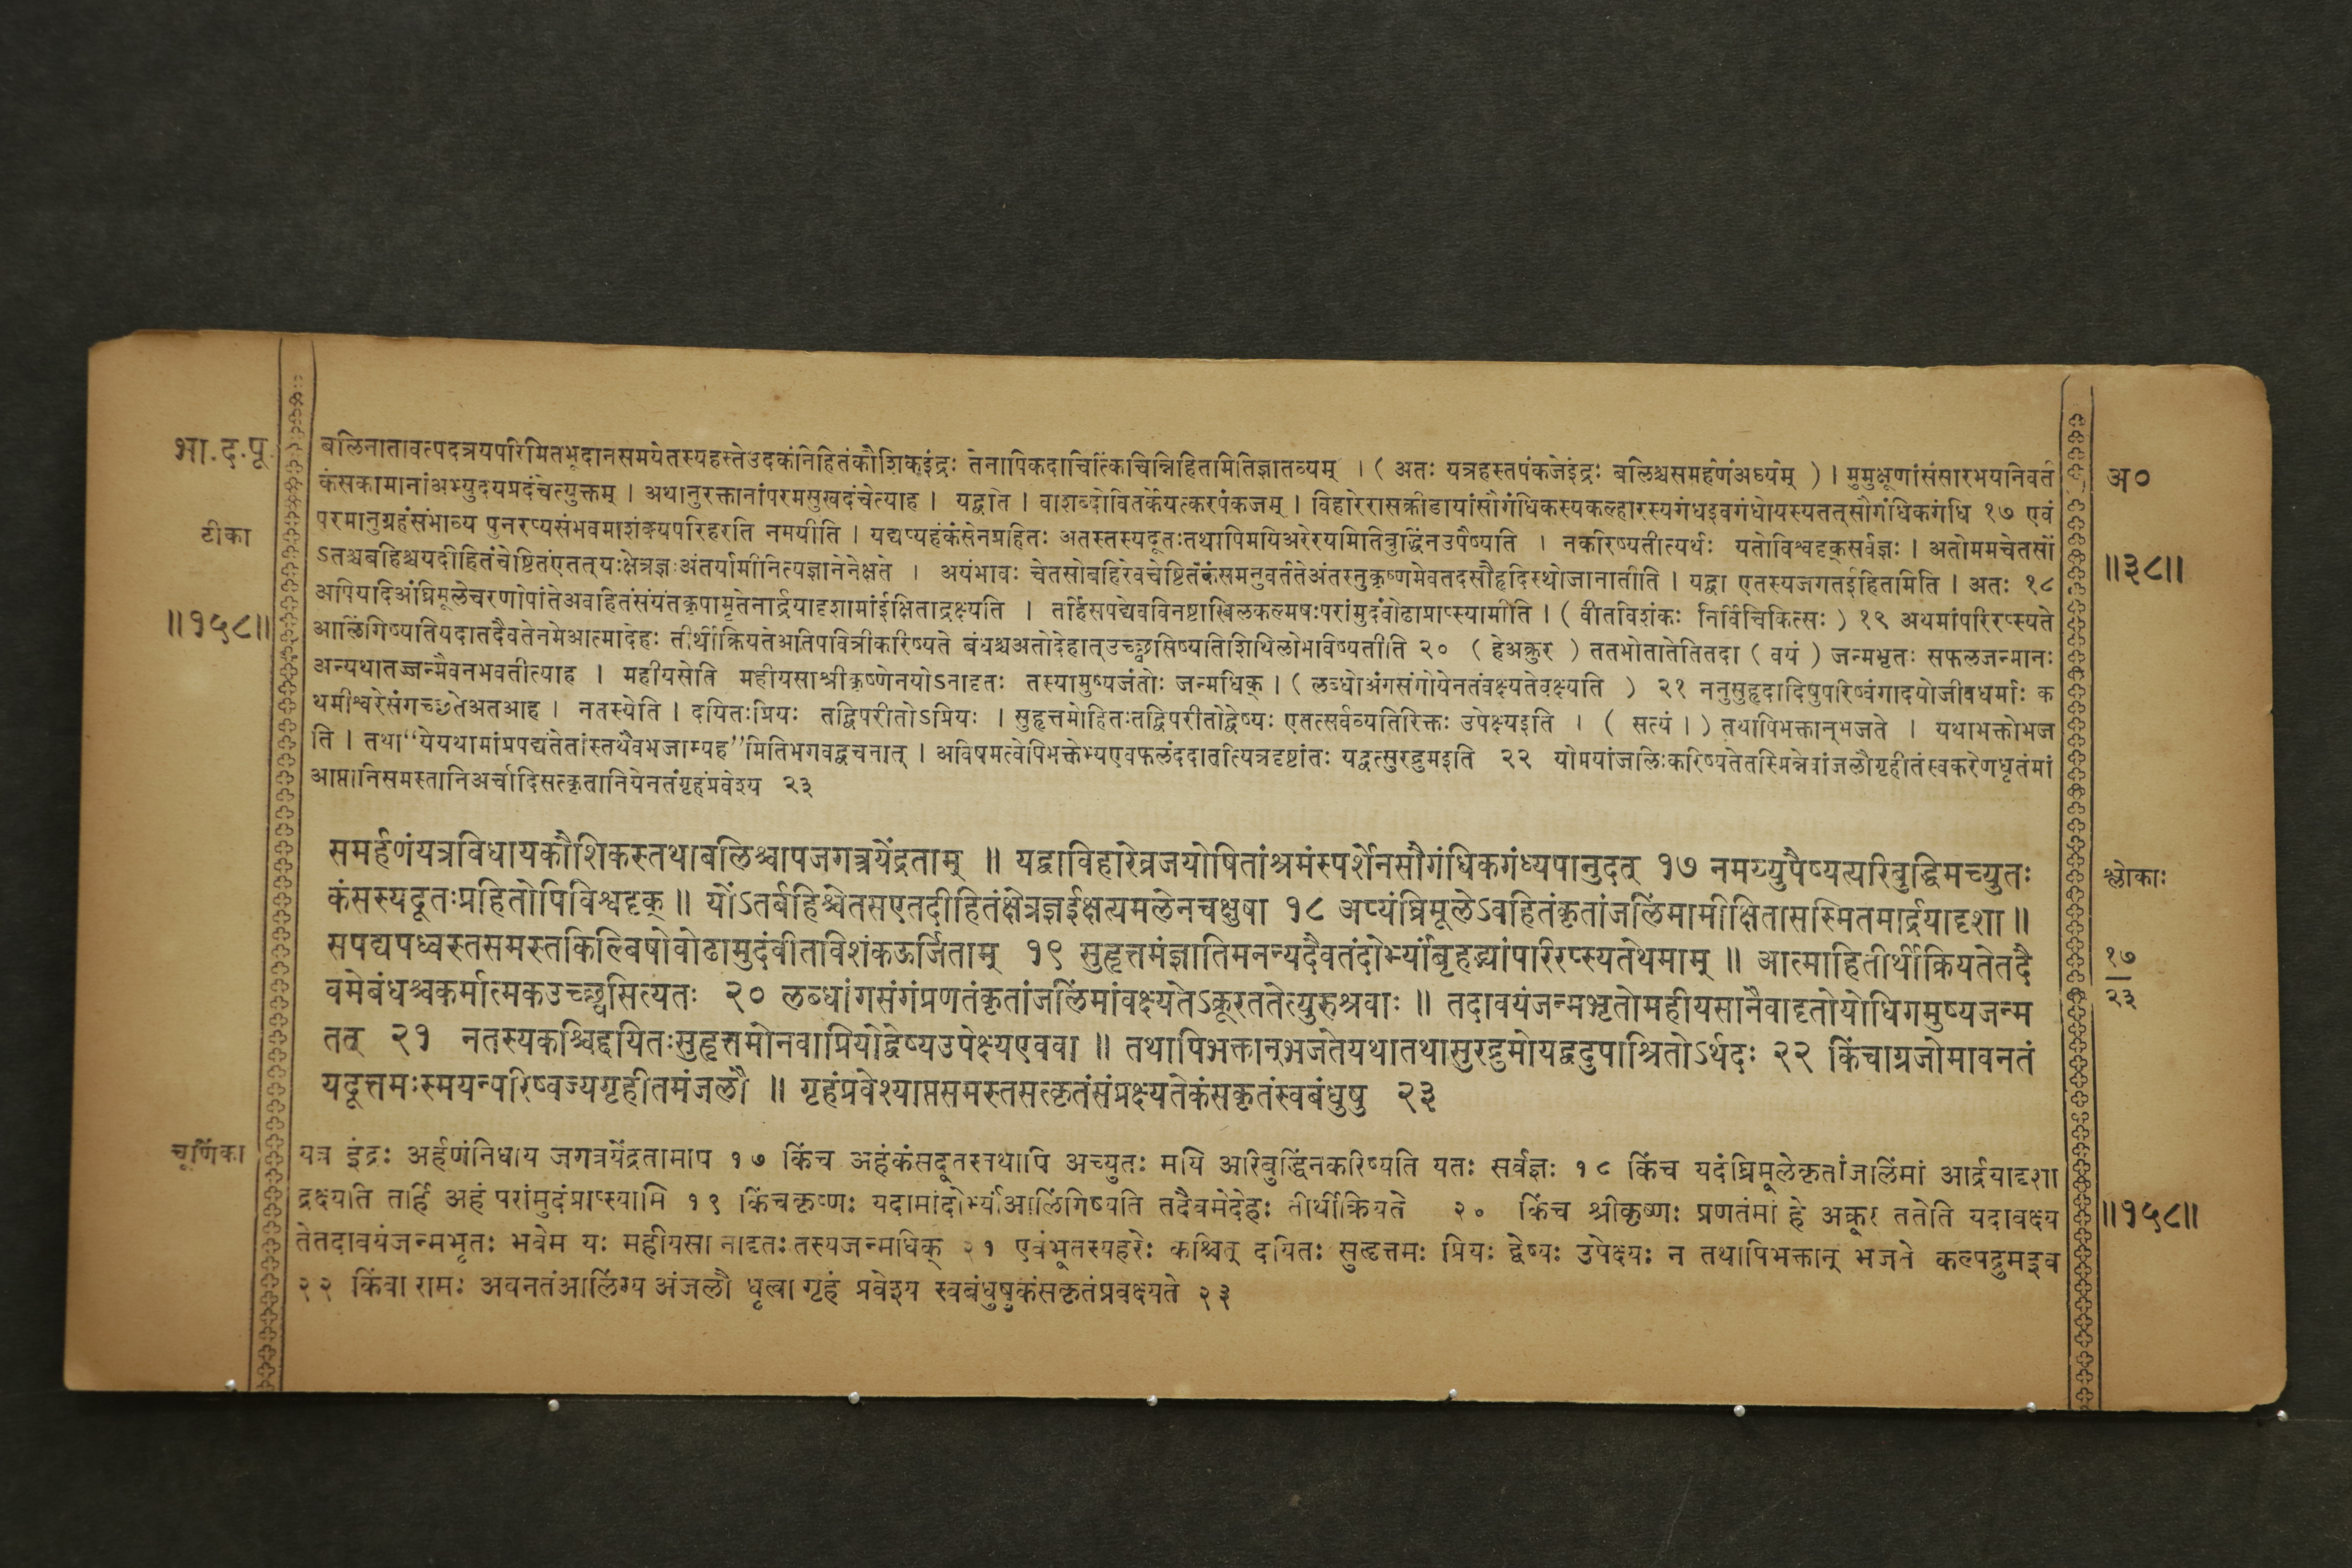 भा.द.पू.
बलिनातावत्पदत्रयपरिमितभूदानसमयेतस्यहस्तेउदकंनिहितंकौशिकइंद्रः तेनापिकदाचित्किंचिन्निहितमितिज्ञातव्यम् । ( अतः यत्रहस्तपंकजेइंद्रः बलिश्चसमर्हणंअर्घ्यम् ) । मुमुक्षूणांसंसारभयनिवर्त
अ०
कंसकामानांअभ्युदयप्रदंचेत्युक्तम् । अथानुरक्तानांपरमसुखदंचेत्याह । यद्वाते । वाशब्दोवितर्केयत्करपंकजम् । विहारेरासक्रीडायांसौगंधिकस्यकल्हारस्यगंधइवगंधोयस्यतत्सौगंधिकगंधि १७ एवं
टीका
परमानुग्रहंसंभाव्य पुनरप्यसंभवमाशंक्यपरिहरति नमयीति । यद्यप्यहंकंसेनप्रहितः अतस्तस्यदूतःतथापिमयिअरेरयमितिबुद्धिंनउपैष्यति । नकरिष्यतीत्यर्थः यतोविश्वदृक्सर्वज्ञः । अतोममचेतसों
ऽतश्चबहिश्चयदीहितंचेष्टितंएतत्यःक्षेत्रज्ञःअंतर्यामीनित्यज्ञानेनेक्षते । अयंभावः चेतसोबहिरेवचेष्टितंकंसमनुवर्ततेअंतस्तुकृष्णमेवतदसौहृदिस्थोजानातीति । यद्वा एतस्यजगतईहितमिति । अतः १८
॥३८॥
अपियदिअंघ्रिमूलेचरणोपांतेअवहितंसंयतंकृपामृतेनार्द्रयादृशामांईक्षिताद्रक्ष्यति । तर्हिसपद्येवविनष्टाखिलकल्मषःपरांमुदंवोढाप्राप्स्यामीति । ( वीतविशंकः निर्विचिकित्सः ) १९ अथमांपरिरप्स्यते
॥१५८॥
आलिंगिष्यतियदातदैवतेनमेआत्मादेहः तीर्थीक्रियतेअतिपवित्रीकरिष्यते बंधश्चअतोदेहात्उच्छ्वसिष्यतिशिथिलोभविष्यतीति २० ( हेअक्रुर ) ततभोतातेतितदा ( वयं ) जन्मभृतः सफलजन्मानः
अन्यथातज्जन्मैवनभवतीत्याह । महीयसेति महीयसाश्रीकृष्णेनयोऽनादृतः तस्यामुष्यजंतोः जन्मधिक् । ( लब्धोअंगसंगोयेनतंवक्ष्यतेवक्ष्यति ) २१ ननुसुहृदादिषुपरिष्वंगादयोजीवधर्माः क
थमीश्वरेसंगच्छतेअतआह । नतस्येति । दयितःप्रियः तद्विपरीतोऽप्रियः । सुहृत्तमोहितःतद्विपरीतोद्वेष्यः एतत्सर्वव्यतिरिक्तः उपेक्ष्यइति । ( सत्यं । ) तथापिभक्तान्भजते । यथाभक्तोभज
ति । तथा“येयथामांप्रपद्यंतेतांस्तथैवभजाम्यह”मितिभगवद्वचनात् । अविषमत्वेपिभक्तेभ्यएवफलंददातीत्यत्रदृष्टांतः यद्वत्सुरद्रुमइति २२ योमयांजलिःकरिष्यतेतस्मिन्नेवांजलौगृहीतंस्वकरेणधृतंमां
आप्तानिसमस्तानिअर्चादिसत्कृतानियेनतंगृहंप्रवेश्य २३
समर्हणंयत्रविधायकौशिकस्तथाबलिश्चापजगत्रयेंद्रताम् ॥ यद्वाविहारेव्रजयोषितांश्रमंस्पर्शेनसौगंधिकगंध्यपानुदत् १७ नमय्युपैष्यत्यरिबुद्धिमच्युतः
श्लोकाः
कंसस्यदूतःप्रहितोपिविश्वदृक् ॥ योंऽतर्बहिश्चेतसएतदीहितंक्षेत्रज्ञईक्षत्यमलेनचक्षुषा १८ अप्यंघ्रिमूलेऽवहितंकृतांजलिंमामीक्षितासस्मितमार्द्रयादृशा ॥
सपद्यपध्वस्तसमस्तकिल्बिषोवोढामुदंवीतविशंकऊर्जिताम् १९ सुहृत्तमंज्ञातिमनन्यदैवतंदोर्भ्यांबृहद्भ्यांपरिरप्स्यतेथमाम् ॥ आत्माहितीर्थीक्रियतेतदै
१७
२३
वमेबंधश्चकर्मात्मकउच्छ्वसित्यतः २० लब्धांगसंगंप्रणतंकृतांजलिंमांवक्ष्यतेऽक्रूरततेत्युरुश्रवाः ॥ तदावयंजन्मभृतोमहीयसानैवादृतोयोधिगमुष्यजन्म
तत् २१ नतस्यकश्चिद्दयितःसुहृत्तमोनवाप्रियोद्वेष्यउपेक्ष्यएववा ॥ तथापिभक्तान्भजतेयथातथासुरद्रुमोयद्वदुपाश्रितोऽर्थदः २२ किंचाग्रजोमावनतं
यदूत्तमःस्मयन्परिष्वज्यगृहीतमंजलौ ॥ गृहंप्रवेश्याप्तसमस्तसत्कृतंसंप्रक्ष्यतेकंसकृतंस्वबंधुषु २३
चूर्णिका
यत्र इंद्रः अर्हणंनिधाय जगत्रयेंद्रतामाप १७ किंच अहंकंसदूतस्तथापि अच्युतः मयि अरिबुद्धिंनकरिष्यति यतः सर्वज्ञः १८ किंच यदंघ्रिमूलेकृतांजलिंमां आर्द्रयादृशा
द्रक्ष्यति तर्हि अहं परांमुदंप्राप्स्यामि १९ किंचकृष्णः यदामांदोर्भ्यांआलिंगिष्यति तदैवमेदेहः तीर्थीक्रियते २० किंच श्रीकृष्णः प्रणतंमां हे अक्रूर ततेति यदावक्ष्य
॥१५८॥
तेतदावयंजन्मभृतः भवेम यः महीयसा नादृतः तस्यजन्मधिक् २१ एवंभूतस्यहरेः कश्चित् दयितः सुहृत्तमः प्रियः द्वेष्यः उपेक्ष्यः न तथापिभक्तान् भजते कल्पद्रुमइव
२२ किंवा रामः अवनतंआलिंग्य अंजलौ धृत्वा गृहं प्रवेश्य स्वबंधुषुकंसकृतंप्रवक्ष्यते २३